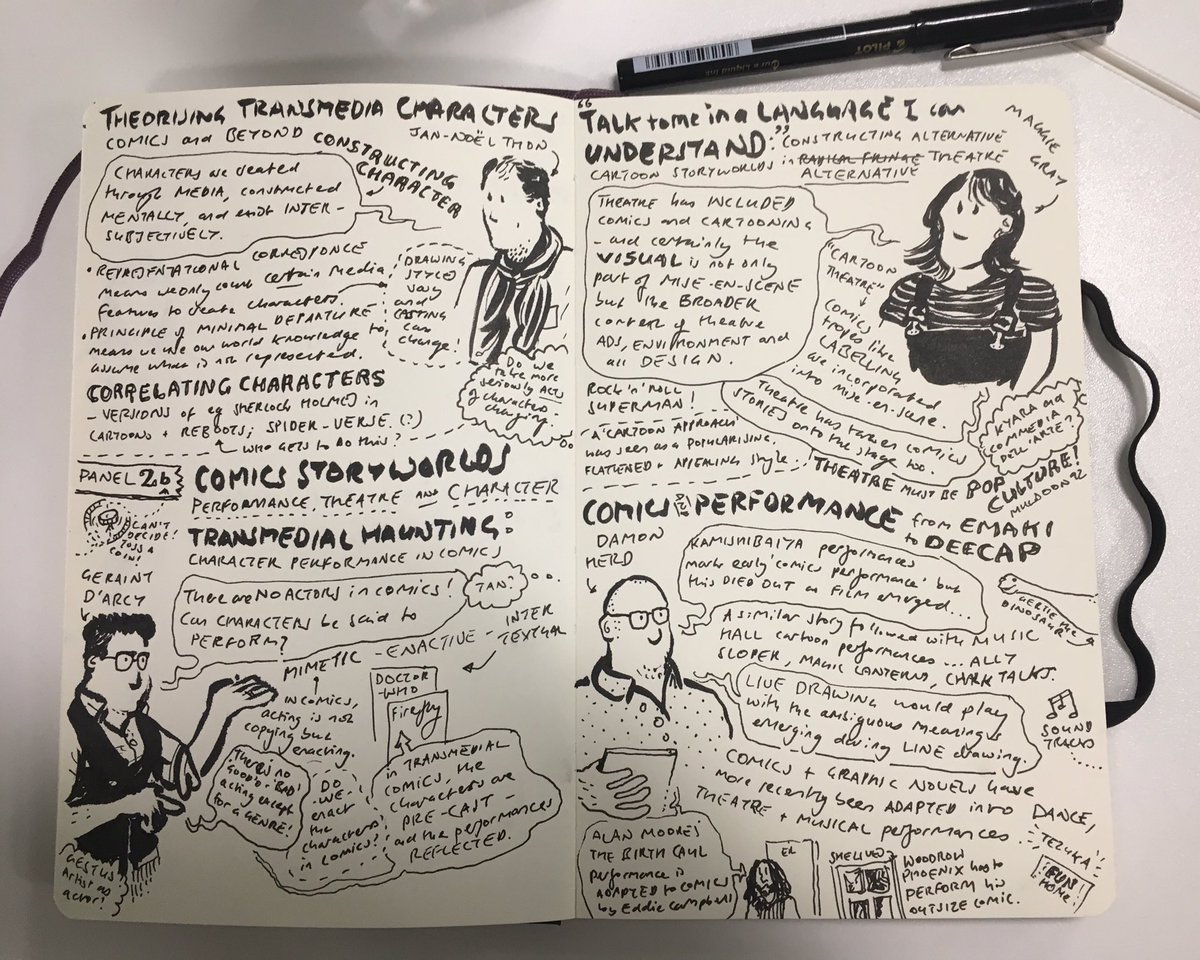 THEORISING TRANSMEDIA CHARACTERS
COMICS and BEYOND
JAN-NOËL THON
CONSTRUCTING
CHARACTER
CHARACTERS are created
through MEDIA, constructed
MENTALLY, and exist INTER-
SUBJECTIVELY.
• REPRESENTATIONAL CORRESPONCE
means we only count certain media
features to create characters.
• PRINCIPLE of MINIMAL DEPARTURE
means we use our world knowledge to
assume what is not represented.
DRAWING
STYLES
vary
and
CASTING
can
change!
Do we
take more
seriously ACTS
of character-
changing.
CORRELATING CHARACTERS
- VERSIONS of eg SHERLOCK HOLMES in
CARTOONS + REBOOTS; SPIDER-VERSE (?)
WHO GETS to DO THIS?
PANEL 2b
COMICS STORYWORLDS
PERFORMANCE, THEATRE and CHARACTER
CAN'T
DECIDE!
TOSS A
COIN!
TRANSMEDIAL HAUNTING:
CHARACTER PERFORMANCE IN COMICS
GERAINT
D'ARCY
There are NO ACTORS in comics!
Can CHARACTERS be said to
PERFORM?
TAN?
MIMETIC - ENACTIVE - INTER
TEXTUAL
IN COMICS,
acting is not
copying but
enacting.
DOCTOR
WHO
Firefly
THERE'S NO
GOOD or BAD
acting except
for a GENRE!
DO
WE
enact
the
characters
in comics?
in TRANSMEDIAL
COMICS, the
characters are
PRE-CAST -
and the performances
REFLECTED.
GESTUS
Artist as
actor!
"TALK to me in a LANGUAGE I can
UNDERSTAND:" CONSTRUCTING ALTERNATIVE
CARTOON STORYWORLDS in RADICAL FRINGE THEATRE
ALTERNATIVE
MAGGIE
GRAY
THEATRE has INCLUDED
COMICS and CARTOONING
- and certainly the
VISUAL is not only
part of MISE-EN-SCENE
but the BROADER
context of theatre
ADS, ENVIRONMENT and
all DESIGN.
"CARTOON
THEATRE"
COMICS
tropes like
LABELLING
are incorporated
into mise-en-scene.
ROCK 'n' ROLL
SUPERMAN!
A 'CARTOON APPROACH'
was seen as a POPULARISING,
FLATTENED + APPEALING style.
Theatre has taken COMICS
STORIES onto the stage too.
KYARA and
COMMEDIA
DELL'ARTE?
THEATRE MUST BE POP
CULTURE!
MULDOON 92
COMICS as PERFORMANCE from EMAKI
to DEECAP
DAMON
HERD
KAMISHIBAIYA performances
mark early 'comics performance' but
this DIED OUT as FILM emerged...
GERTIE the
DINOSAUR
A similar story followed with MUSIC
HALL cartoon performances... ALLY
SLOPER, MAGIC LANTERNS, CHALK TALKS.
LIVE DRAWING would play
with the ambiguous meanings
emerging during LINE drawing.
SOUND
TRACKS
COMICS + GRAPHIC NOVELS have
more recently been ADAPTED into DANCE,
THEATRE + MUSICAL performances
TEZUKA
FUN
HOME
ALAN MOORE'S
THE BIRTH CAUL
performance is
ADAPTED to COMICS
by Eddie Campbell
SHE LIVES
WOODROW
PHOENIX has to
PERFORM his
OUTSIZE COMIC.
PILOT
Pure Liquid Ink